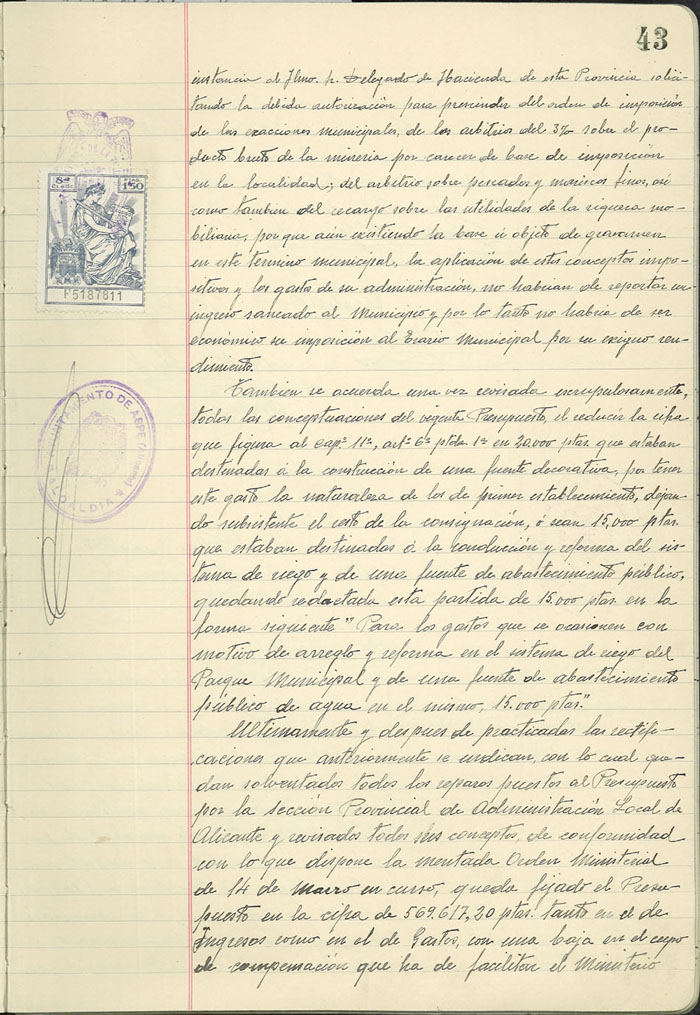 43
instancia al Ilmo. Sr. Delegado de Hacienda de esta Provincia solici-
tando la debida autorización para prescindir del orden de imposición
de las exacciones municipales, de los arbitrios del 3% sobre el pro-
ducto bruto de la mineria por carecer de base de imposición
en la localidad; del arbitrio sobre pescados y mariscos finos, asi
como tambien del recargo sobre las utilidades de la riqueza mo-
biliaria, por que aún existiendo la base ú objeto de gravamen
en este termino municipal, la aplicación de estos conceptos impo-
sitivos y los gastos de su administración, no habrian de reportar un
ingreso saneado al Municipio y por lo tanto no habria de ser
económico su imposición al Erario Municipal por su exiguo ren-
dimiento.
Tambien se acuerda una vez revisada escrupulosamente,
todas las conceptuaciones del vigente Presupuesto, el reducir la cifra
que figura al cap.º 11º, artº 6º ptda. 1ª en 20.000 ptas. que estaban
destinadas á la construcción de una fuente decorativa, por tener
este gasto la naturaleza de los de primer establecimiento, dejan-
do subsistente el resto de la consignación, ó sean 15,000 ptas.
que estaban destinadas á la conducción y reforma del sis-
tema de riego y de una fuente de abastecimiento público,
quedando redactada esta partida de 15.000 ptas. en la
forma siguiente "Para los gastos que se ocasionen con
motivo de arreglo y reforma en el sistema de riego del
Parque Municipal y de una fuente de abastecimiento
público de agua en el mismo, 15.000 ptas."
Ultimamente y despues de practicadas las rectifi-
caciones que anteriormente se indican, con lo cual que-
dan solventados todos los reparos puestos al Presupuesto
por la Sección Provincial de Administración Local de
Alicante y revisados todos sus conceptos, de conformidad
con lo que dispone la mentada Orden Ministerial
de 14 de Marzo en curso, queda fijado el Presu-
puesto en la cifra de 569.617,20 ptas. tanto en el de
Ingresos como en el de Gastos, con una baja en el cupo
de compensación que ha de facilitar el Ministerio
8ª
CLASE
1'50
F5187811
AYUNTAMIENTO DE ASPE (Alicante)
ALCALDIA